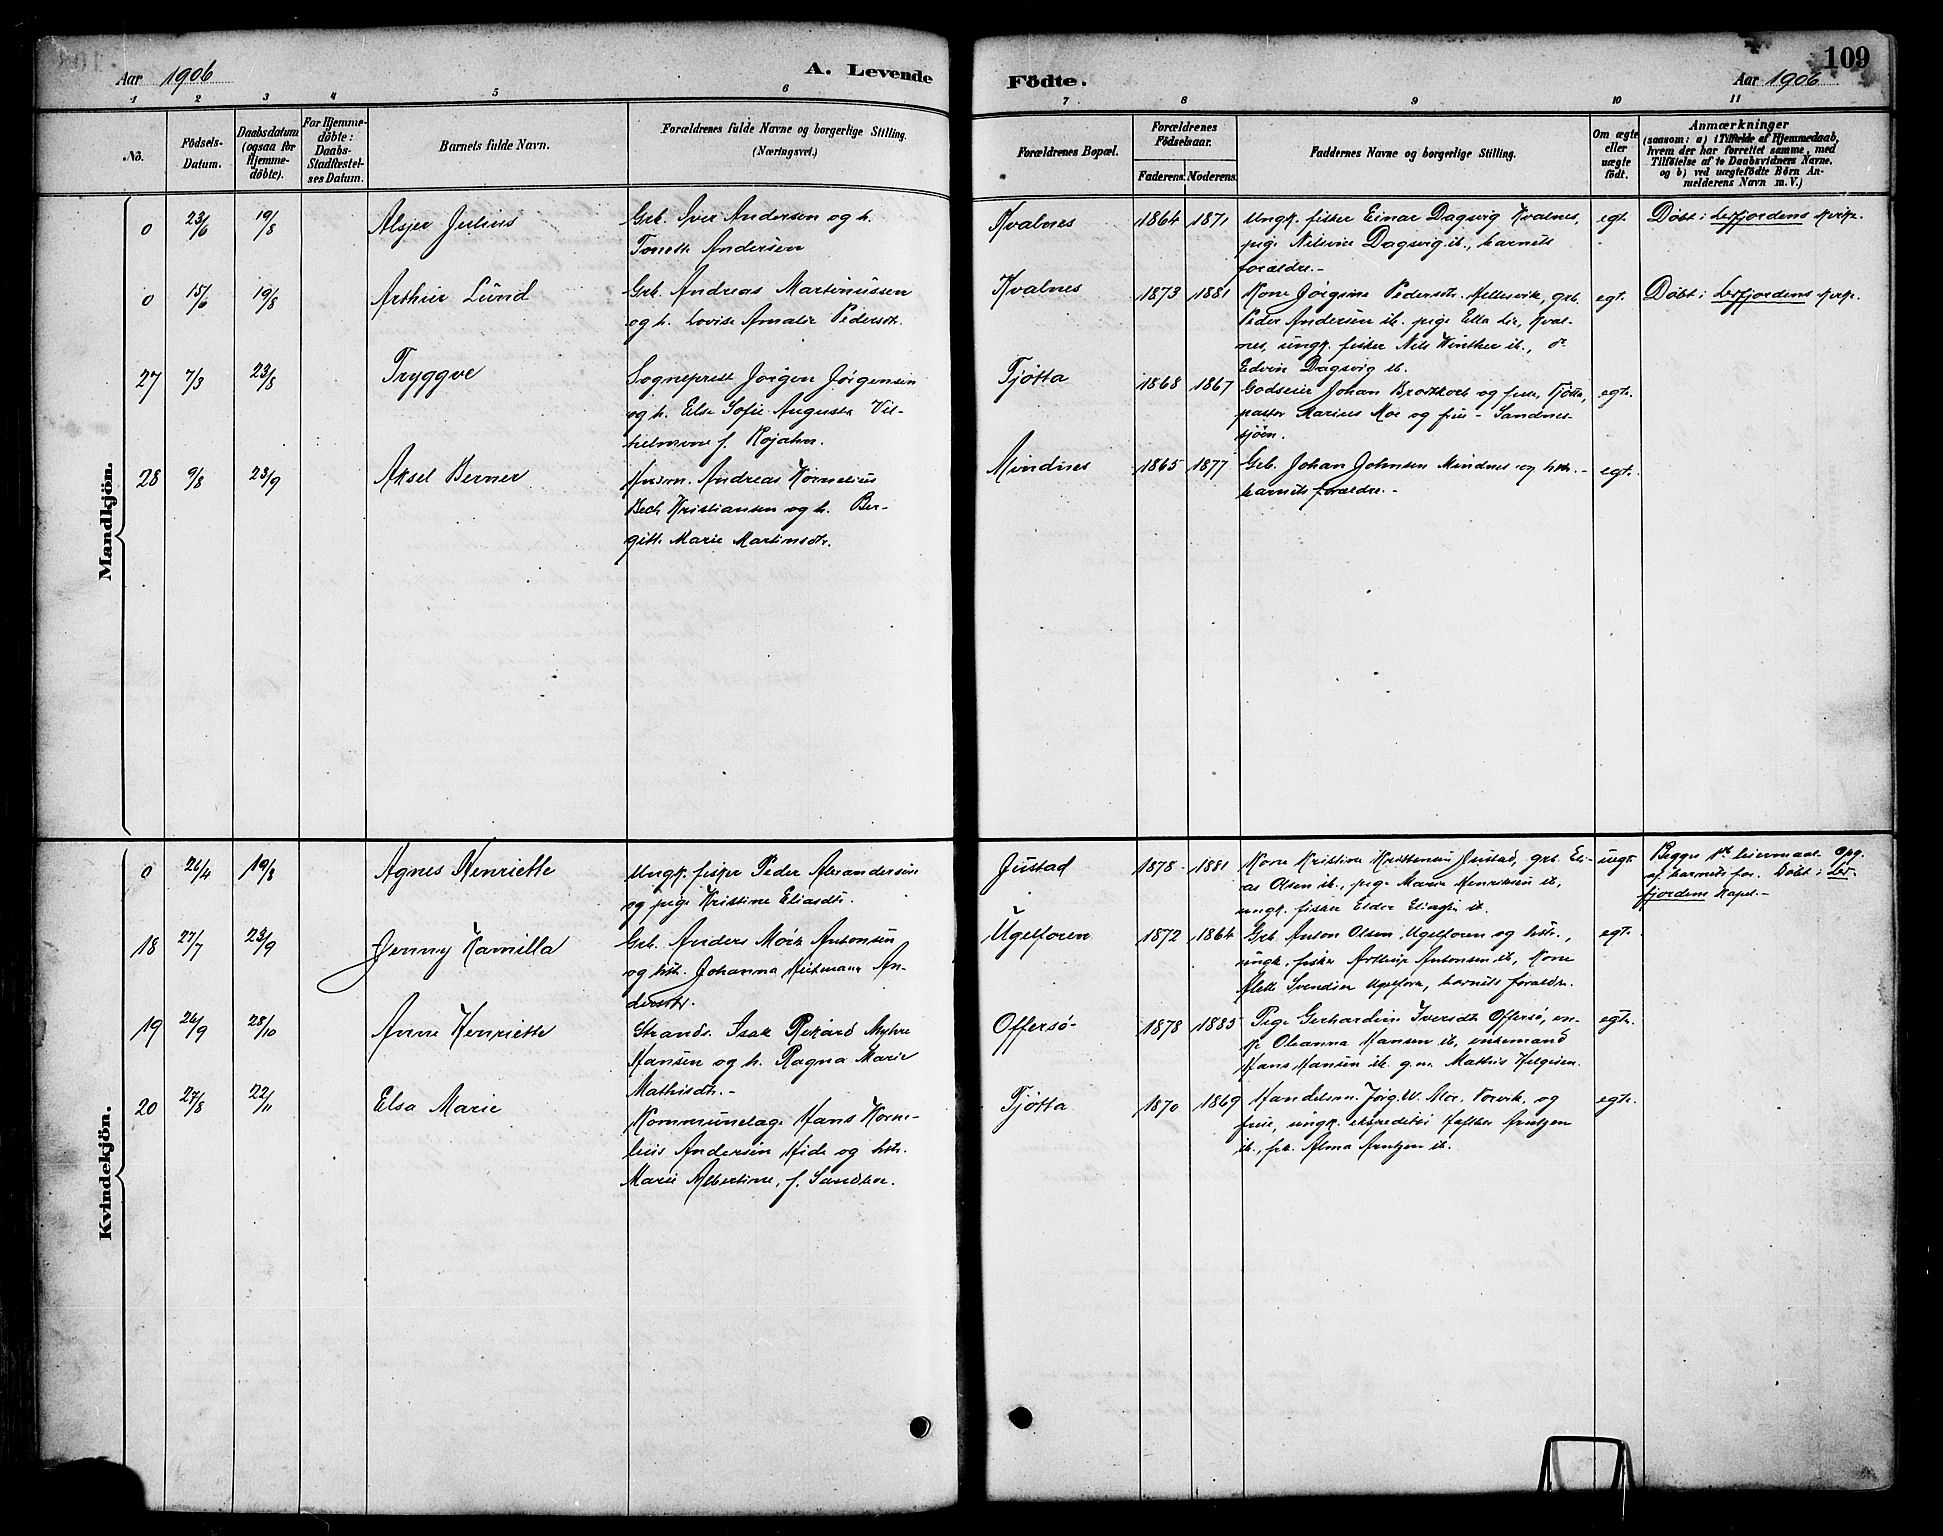 109
Aar 1906
A. Levende
Födte.
Aar 1906
1 2 3 4 5 6 7 8 9 10 11
No.
Födsels-
Datum.
Daabsdatum
(ogsaa for
Hjemme-
döbte).
For Hjemme-
döbte:
Daabs-
Stadfæstel-
ses Datum.
Barnets fulde Navn.
Forældrenes fulde Navne og borgerlige Stilling.
(Næringsvei.)
Forældrenes Bopæl.
Forældrenes
Födselsaar.
Faderens. Moderens.
Faddernes Navne og borgerlige Stilling.
Om ægte
eller
uægte
födt.
Anmærkninger
(saasom: a) i Tilfælde af Hjemmedaab,
hvem der har forrettet samme, med
Tilföielse af to Daabsvidners Navne,
og b) ved uægtefödte Börn An-
melderens Navn m. V.)
Mandkjön.
0 23/6 19/8 Alsjer Julius
Grb. Iver Andersen og h.
Tonette Andersen
Kvalnes 1864 1871
Ungk. fisker Einar Dagsvig Kvalnes,
pige Nilsvine Dagsvig ib., barnets
forældre.-
egt. Døbt i Lerfjordens kirke.
0 15/6 19/8 Arthur Lund
Grb. Andreas Martinussen
og h. Lovise Amalie Pedersdtr.
Kvalnes 1873 1881
Kone Jørgine Pedersdtr. Mellesvik, grb.
Peder Andersen ib. pige Ella Lie, Kval-
nes, ungk. fisker Nils Winther ib., do
Edvin Dagsvig ib.
egt. Døbt i Lerfjordens kirke.
27 7/3 23/8 Tryggve
Sogneprest Jørgen Jørgensen
og h. Else Sofie Augusta Vil-
helmine f. Rojahn.
Tjøtta 1868 1867
Godseier Johan Brodtkorb og frue, Tjøtta,
pastor Marius Moe og frue - Sandnes-
sjøen.
egte.
28 9/8 23/9 Aksel Berner
Andreas Kornelius
Bech Kristiansen og h. Ber-
gitte Marie Martinsdtr.
Mindnes 1865 1877
Grb. Johan Johnsen Mindnes og hstr. -
barnets forældre.-
egt.
Kvindekjön.
0 26/4 19/8 Agnes Henriette
Ungk. fisker Peder Alexandersen
og pige Kristine Eliasdtr.
Justad 1878 1881
Kone Kristine Kristensen Justad, grb. Eli-
as Olsen ib., pige Marie Henriksen ib,
ungk. fisker Elder ib.
uegt.
Begges 1ste leiermaal. Opg.
af barnets far. Døbt i Ler-
fjordens kapel.-
18 27/7 23/9 Jenny Kamilla
Grb. Anders Antonsen
og hstr. Johanna An-
dersdtr.
Ugelforen 1872 1864
Grb Anton Olsen, Ugelforen og hstr.,
ungk. fisker Antonsen ib, Kone
Alette Svendsen Ugelforen, barnets forældre.
egt.
19 26/9 28/10 Anne Henriette
Strands. Isak Rikard Myhre
Hansen og h. Ragna Marie
Mathisdtr.-
Offersø- 1878 1885
Pige Gerhardine Iversdtr Offersø, en-
ke Oleanna Hansen ib, enkemand
Hans Hansen ib. g.m. Mathis Helgesen.
egte.
20 27/8 22/11 Elsa Marie
Kommunelæge Hans Korne-
lius Andersen Hide og hstr.
Marie Albertine, f. Sandhor.
Tjøtta 1870 1869
Handelsm. Jørg. W. Moe, Forvik, og
frue, ungk. ekspeditør Arntzen
ib., frk. Alma Arntzen ib.
egte.